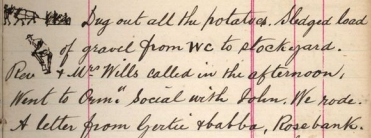 Dug out all the potatoes. Sledged load
of gravel from WC to stockyard.
Rev & Mrs Wills called in the afternoon,
Went to Orm" Social with John, We rode.
A letter from Gertie & babba, Rosebank.